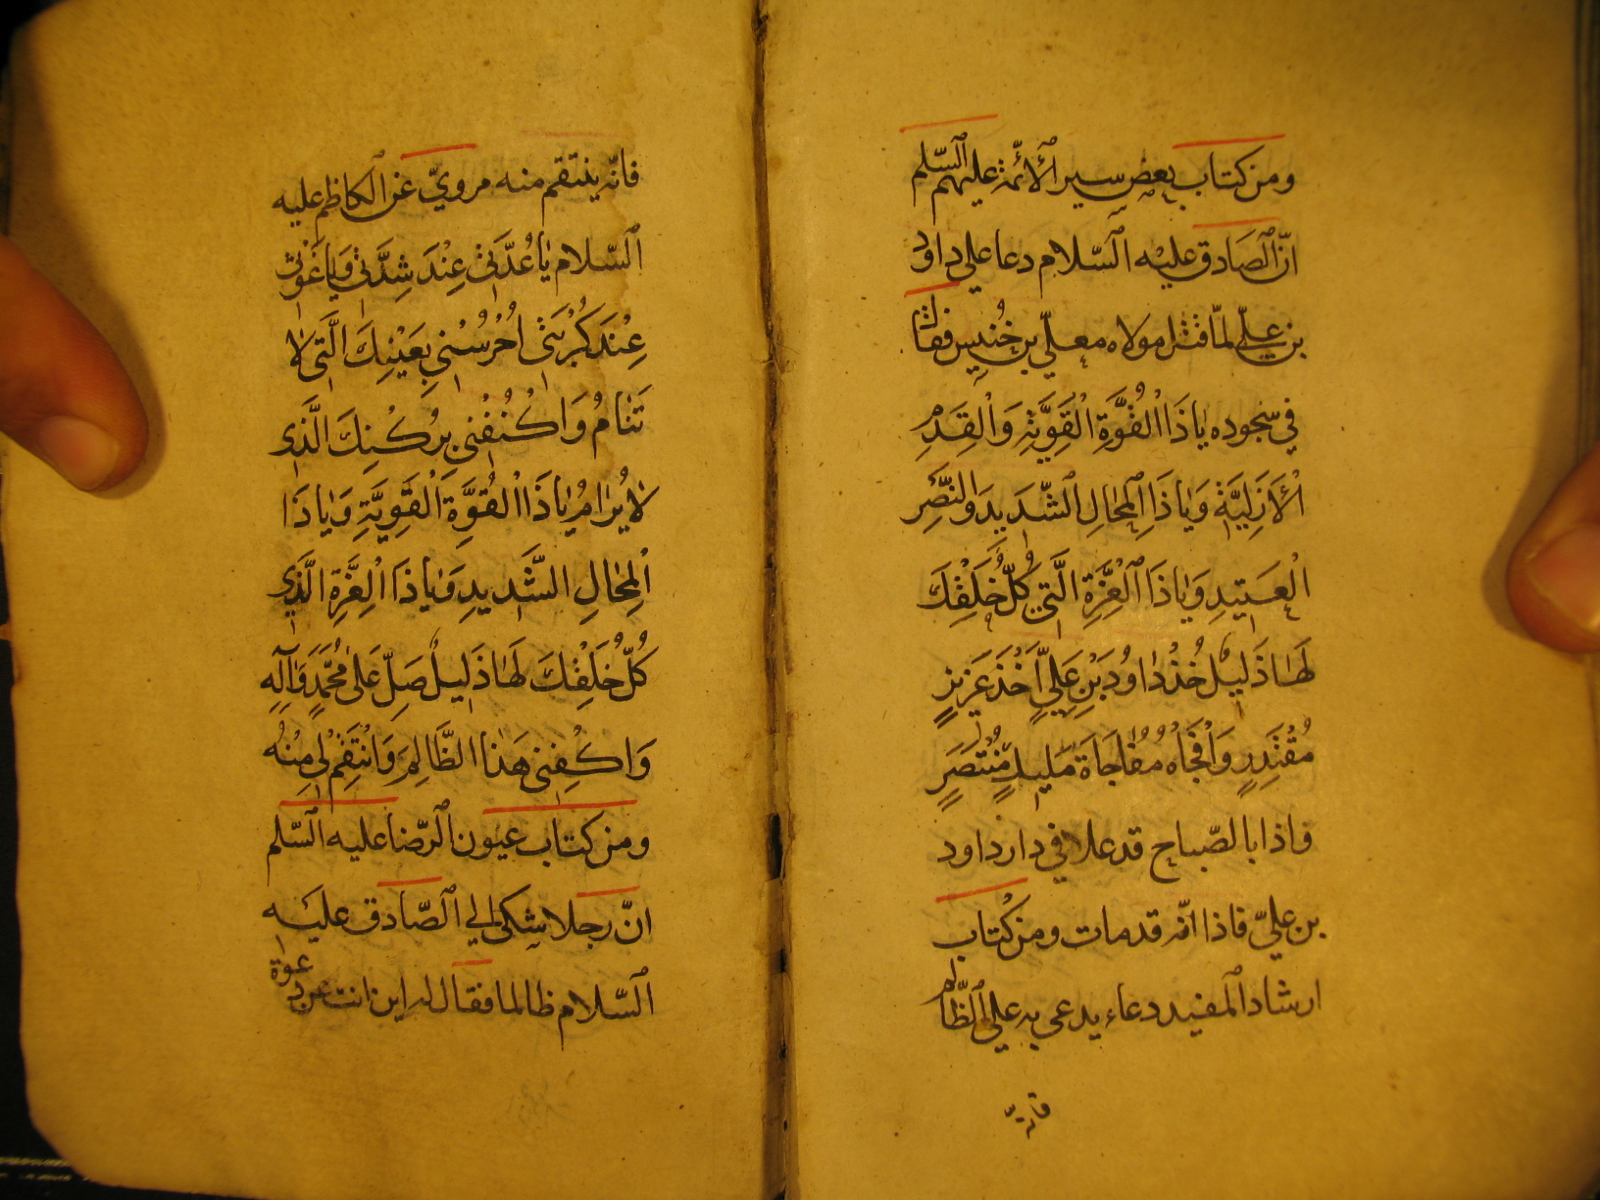 ومن كتاب بعض سير الأئمة عليهم السلم
انّ الصّادق عليه السّلام دعا على داود
بن عليّ لمّا قتل مولاه معلّى بن خنيس فقال
في سجوده يا ذَا الْقُوَّةِ الْقَوِيَّةِ وَالْقِدَمِ
الْأَزَلِيَّةِ وَيا ذَا الْمِحالِ الشَّدِيدِ وَالنَّصْرِ
الْعَتِيدِ وَيا ذَا الْعِزَّةِ الَّتِي كُلُّ خَلْقِكَ
لَها ذَلِيلٌ خُذْ داوُدَ بْنَ عَلِيٍّ اَخْذَ عَزِيزٍ
مُقْتَدِرٍ وَافْجَاْهُ مُفاجَاَةَ مَلِيكٍ مُنْتَصِرٍ
واذا بالصّباح قد علا في دار داود
بن عليّ فاذا انّه قد مات ومن كتاب
ارشاد المفيد دعاء يدعى به على الظّالم
فانّه
فانّه ينتقم منه مرويّ عن الكاظم عليه
السّلام يا عُدَّتِي عِنْدَ شِدَّتِي وَيا غَوْثِي
عِنْدَ كُرْبَتِي اُحْرُسْنِي بِعَيْنِكَ الَّتِي لا
تَنامُ وَاكْنُفْنِي بِرُكْنِكَ الَّذِي
لا يُرامُ يا ذَا الْقُوَّةِ الْقَوِيَّةِ وَيا ذَا
الْمِحالِ الشَّدِيدِ وَيا ذَا الْعِزَّةِ الَّذِي
كُلُّ خَلْقِكَ لَها ذَلِيلٌ صَلِّ عَلى مُحَمَّدٍ وَآلِهِ
وَاكْفِنِي هَذا الظَّالِمَ وَانْتَقِمْ لِي مِنْهُ
ومن كتاب عيون الرّضا عليه السّلم
انّ رجلا شكى الي الصّادق عليه
السّلام ظالما فقال له اين انت عن دعوة